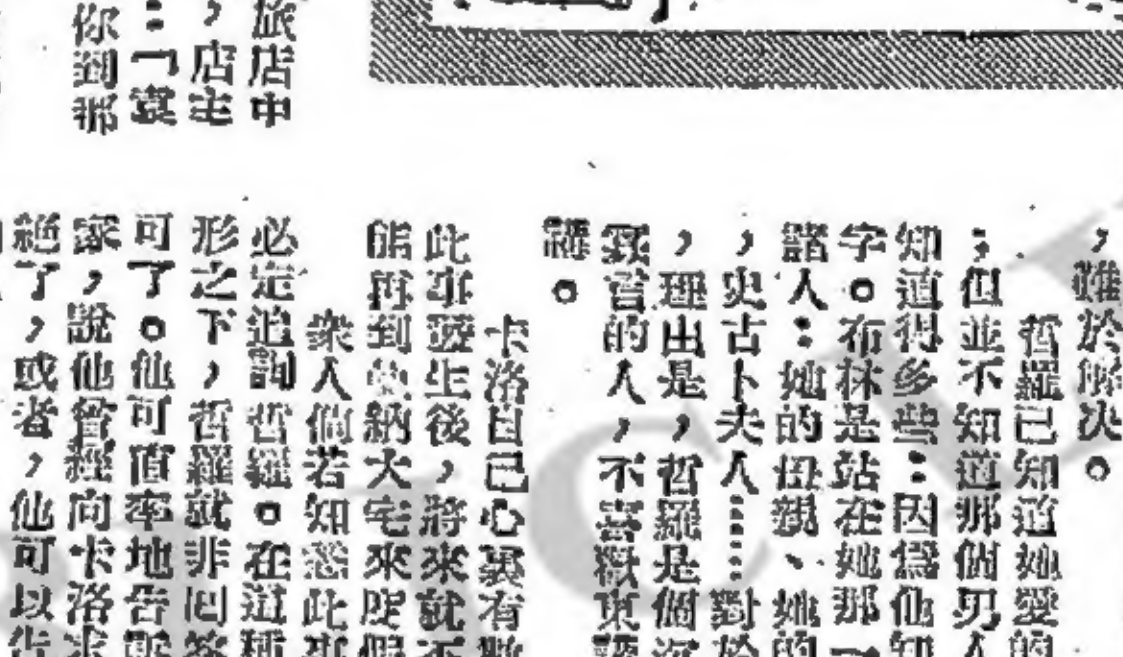 旅店中
，店主
：「裳
你到那
，難於解決。
哲羅已知道她愛的
；但並不知道那個男人
知道得多些：因為他知
字。布林是站在她那一
諸人：她的母親、她的
，史古卜夫人……對於
，理由是，哲羅是個沉
寡言的人，不喜歡東講
講。
卡洛自己心裏有數
此事發生後，將來就不
能再到 納大宅來度假
衆人倘若知悉此事
必定追詢哲羅。在這種
形之下，哲羅就非回答
可了。他可直率地告訴
家，說他曾經向卡洛求
絕了，或者，他可以告